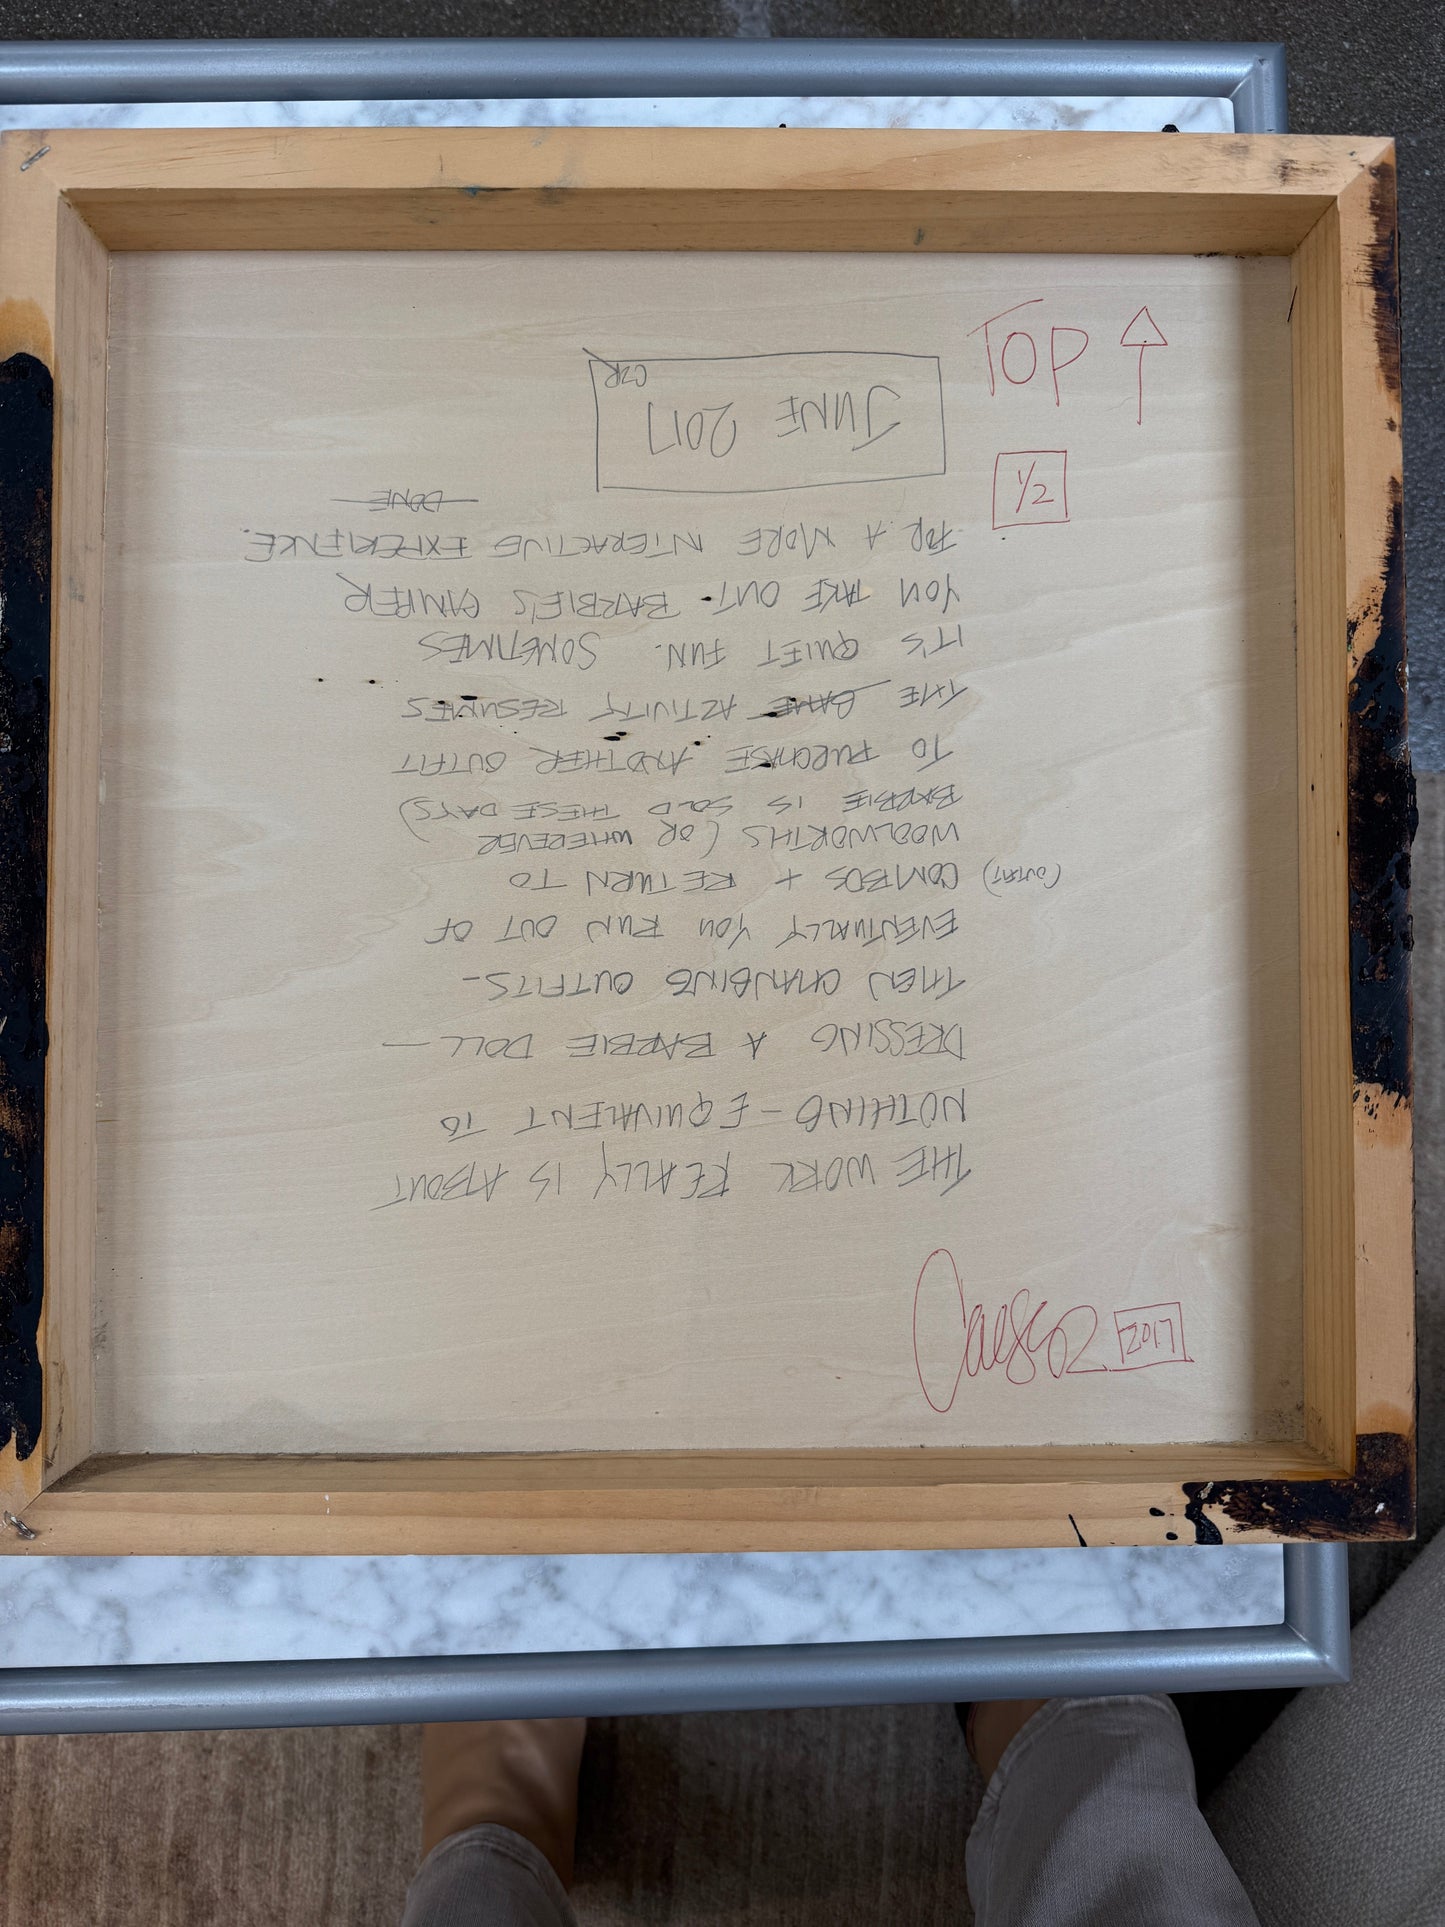 TOP ↑
1/2
THE WORK REALLY IS ABOUT
NOTHING – EQUIVALENT TO
DRESSING A BARBIE DOLL –
THEN CHANGING OUTFITS –
EVENTUALLY YOU RUN OUT OF
(OUTFIT) COMBOS + RETURN TO
WOOLWORTHS (OR WHEREVER
BARBIE IS SOLD THESE DAYS)
TO PURCHASE ANOTHER OUTFIT
THE GAME ACTIVITY RESUMES
IT'S QUIET FUN. SOMETIMES
YOU TAKE OUT BARBIE'S CAMPER
FOR A MORE INTERACTIVE EXPERIENCE.
DONE
JUNE 2017
CZR
2017